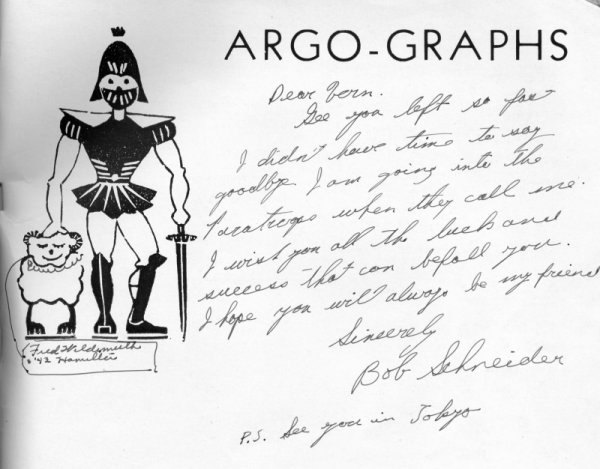 ARGO-GRAPHS
Dear Vern.
See you left so fast
I didn't have time to say
goodbye I am going into the
Paratroops when they call me.
I wish you all the luck and
success that can befall you.
I hope you will always be my friend
Sincerely
Bob Schneider
P.S. See you in Tokyo
Fred Wildermuth
'42 Hamilton